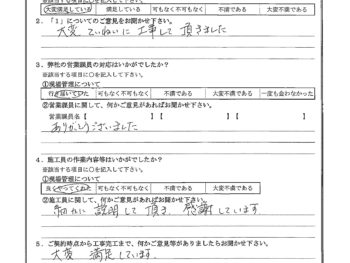 大変満足している 満足している 可も不可もなく 不満である 大変不満である
2．「1」についてのご意見をお聞かせ下さい。
大変 ていねいに 工事して 頂きました
3．弊社の営業職員の対応はいかがでしたか？
※該当する項目に○を記入して下さい。
①現場管理について
行き届いていた 可も不可もなく 不満である 大変不満である 一度も会わなかった
②営業職員に関して、何かご意見があればお聞かせ下さい。
営業職員名【 】【 】【 】
ありがとうございました
4．施工員の作業内容等はいかがでしたか？
※該当する項目に○を記入して下さい。
①現場管理について
良くやってくれた 可も不可もなく 不満である 大変不満である
②施工員に関して、何かご意見があればお聞かせ下さい。
細かに 説明して 頂き 感謝しています
5．ご契約時点から工事完工まで、何かご意見等がありましたらお聞かせ下さい。
大変 満足しています.